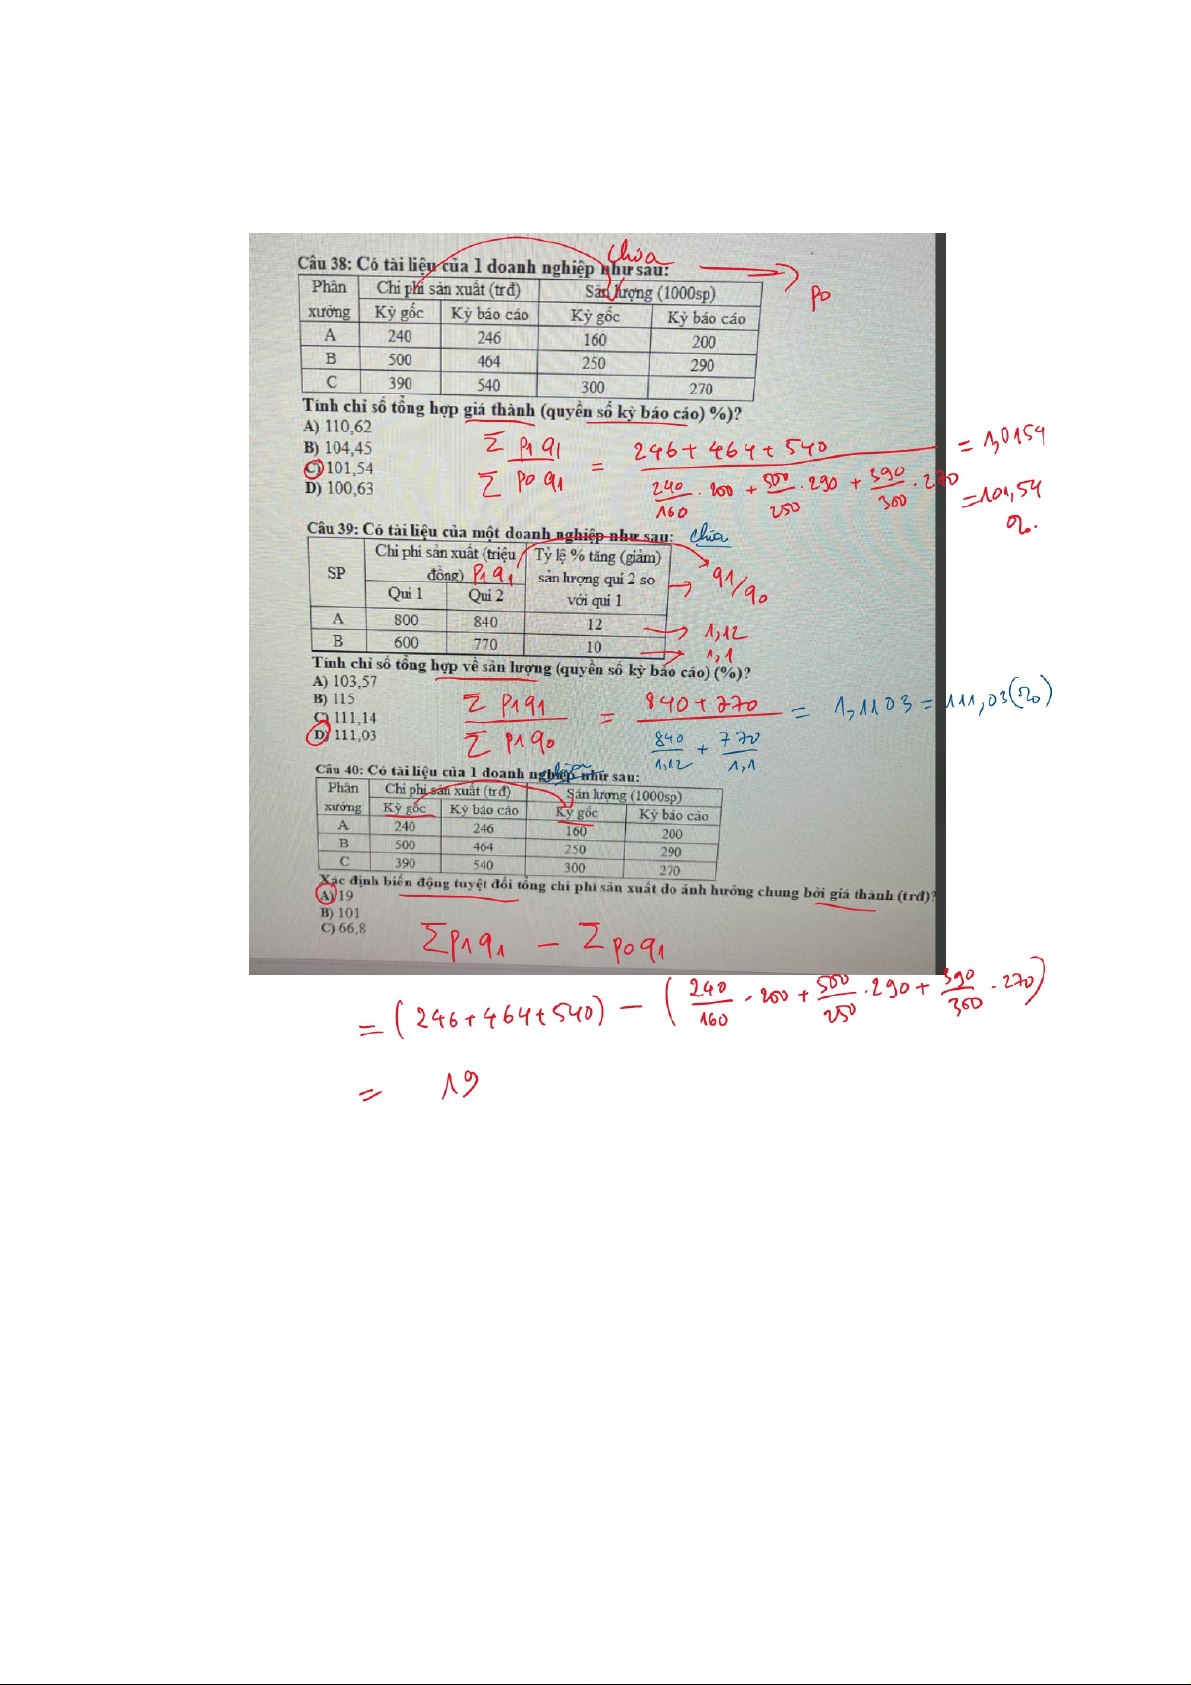 chia
Câu 38: Có tài liệu của 1 doanh nghiệp như sau:
p0
Phân xưởng Chi phí sản xuất (trđ) Sản lượng (1000sp)
Kỳ gốc Kỳ báo cáo Kỳ gốc Kỳ báo cáo
A 240 246 160 200
B 500 464 250 290
C 390 540 300 270
Tính chỉ số tổng hợp giá thành (quyền số kỳ báo cáo) %)?
A) 110,62
B) 104,45
C) 101,54
D) 100,63
Σ p1 q1 / Σ p0 q1 = (246 + 464 + 540) / (240/160 . 200 + 500/250 . 290 + 390/300 . 270) = 1,0154
= 101,54 %.
Câu 39: Có tài liệu của một doanh nghiệp như sau: chia
SP Chi phí sản xuất (triệu đồng) p1 q1 Tỷ lệ % tăng (giảm) sản lượng quí 2 so với quí 1 → q1/q0
Qui 1 Qui 2
A 800 840 12 → 1,12
B 600 770 10 → 1,1
Tính chỉ số tổng hợp về sản lượng (quyền số kỳ báo cáo) (%)?
A) 103,57
B) 115
C) 111,14
D) 111,03
Σ p1q1 / Σ p1q0 = (840 + 770) / (840/1,12 + 770/1,1) = 1,1103 = 111,03 (%)
Câu 40: Có tài liệu của 1 doanh nghiệp như sau:
chia
Phân xưởng Chi phí sản xuất (trđ) Sản lượng (1000sp)
Kỳ gốc Kỳ báo cáo Kỳ gốc Kỳ báo cáo
A 240 246 160 200
B 500 464 250 290
C 390 540 300 270
Xác định biến động tuyệt đối tổng chi phí sản xuất do ảnh hưởng chung bởi giá thành (trđ)?
A) 19
B) 101
C) 66,8
Σp1q1 - Σp0q1
= (246 + 464 + 540) - (240/160 . 200 + 500/250 . 290 + 390/300 . 270)
= 19